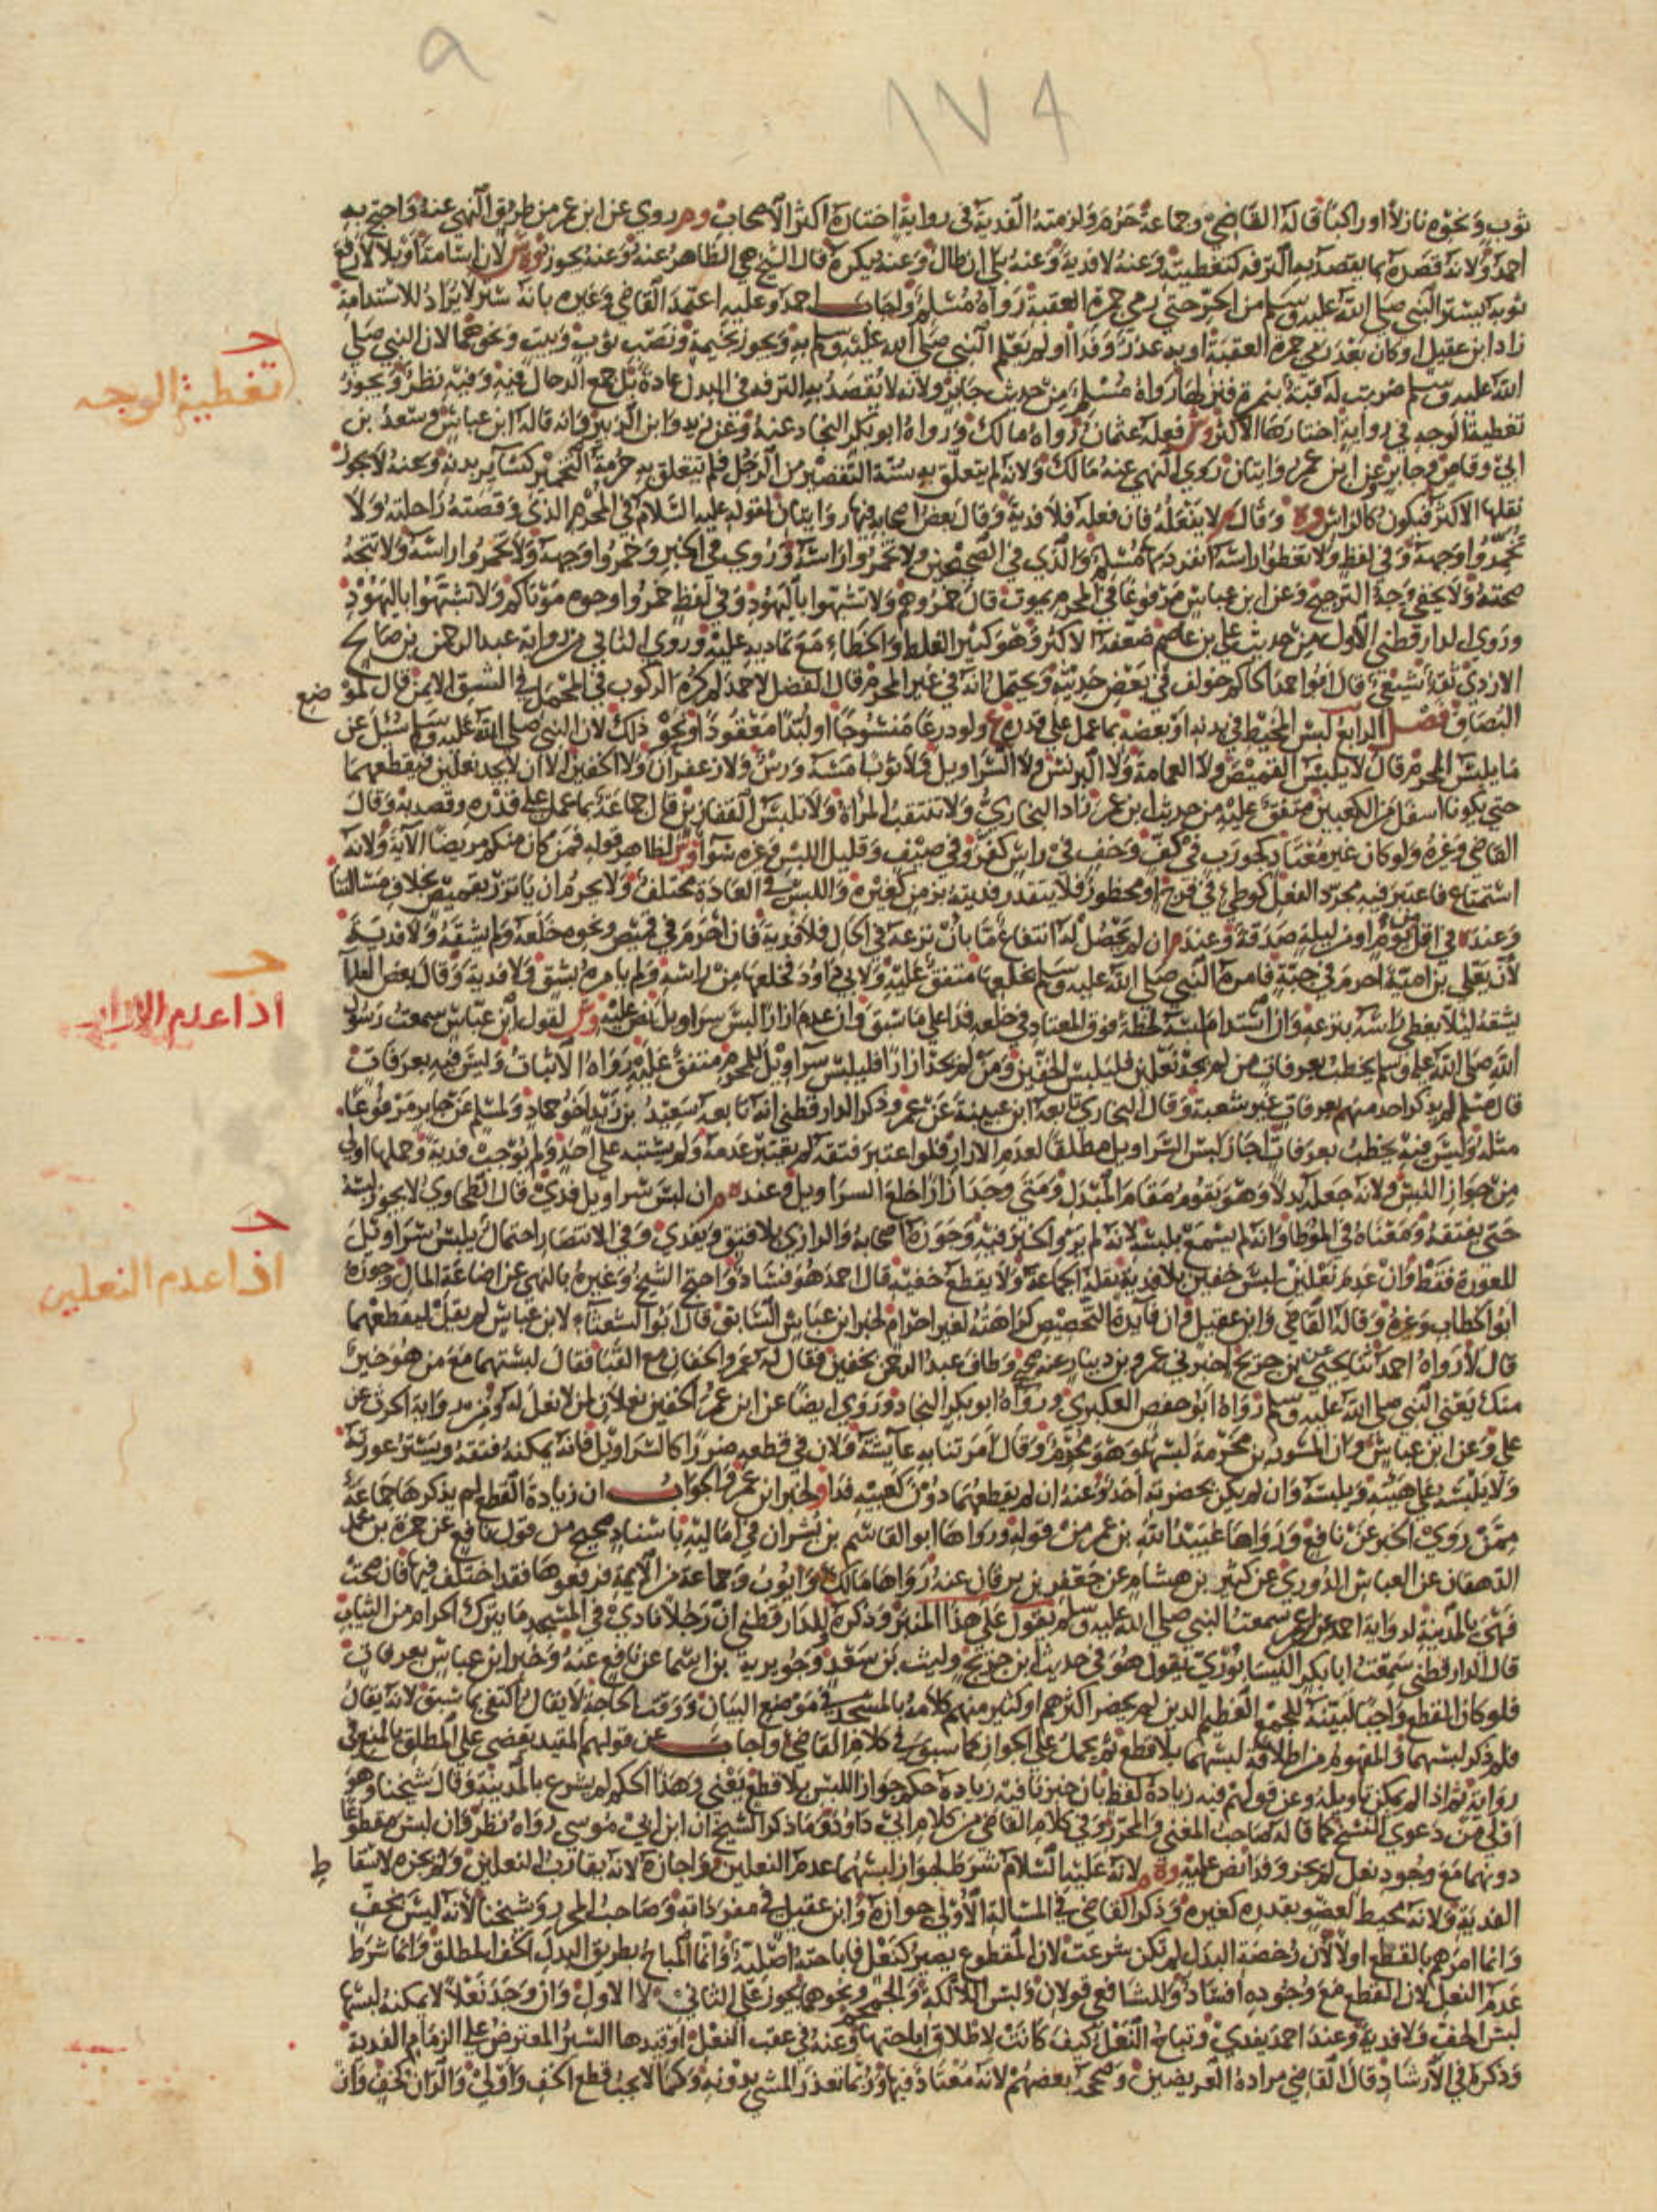 a
١٧٤
ثوب ونحوه نازلا أو راكبا قاله القاضي وجماعة حرم ولزمته الفدية في رواية اختاره أكثر الأصحاب وهر روي عن ابن عمر من طريق النهي عنه واحتج به
احمد ولانه قصده بما يقصد به الترفه كتغطيته وعنه لا فدية وعنه بلى ان طال وعنه يكره قال الشيخ هي الظاهر عنه وعنه يجوز وه وش لان اسامة او بلالا رفع
ثوبه يستر النبي صلى الله عليه وسلم من الحر حتى رمى جمرة العقبة رواه مسلم واجاب احمد وعليه اعتمد القاضي وغيره بانه ستر لا يراد للاستدامة
زاد ابن عقيل او كان بعد رمي جمرة العقبة او به عذر وفدا او لم يعلم النبي صلى الله عليه وسلم به ويجوز بخيمة ونصب ثوب وبيت ونحوهما لان النبي صلى
الله عليه وسلم ضربت له قبة بنمرة فنزلها رواه مسلم من حديث جابر ولانه لا يقصد به الترفه في البدن عادة بل جمع الرحال فيه وفيه نظر ويجوز
تغطية الوجه في رواية اختارها الاكثر وش فعله عثمان رواه مالك ورواه ابو بكر النجاد عنه وعن زيد وابن الزبير وانه قاله ابن عباس وسعد بن
ابي وقاص وجابر وعن ابن عمر روايتان روي النهي عنه مالك ولانه لم يتعلق به سنة التقصير من الرجل فلم يتعلق به حرمة التخمير كسائر بدنه وعنه لا يجوز
نقلها الاكثر فيكون كالراس وه وقال لا يفعله فان فعله فلا فدية وقال بعض اصحابه فيها روايتان لقوله عليه السلام في المحرم الذي وقصته راحلته ولا
تخمروا وجهه وفي لفظ ولا تغطوا راسه انفرد بهما مسلم والذي في الصحيحين ولا تخمروا راسه وروي في الخبر وخمروا وجهه ولا تخمروا راسه ولا تتجه
صحته ولا يخفى وجه الترجيح وعن ابن عباس مرفوعا في المحرم يموت قال خمروهم ولا تشبهوا باليهود وفي لفظ خمروا وجوه موتاكم ولا تشبهوا باليهود
وروى الدارقطني الاول من حديث علي بن عاصم ضعفه الاكثر وهو كثير الغلط والخطاء مع تماديه عليه وروي الثاني من رواية عبد الرحمن بن صالح
الازدي ثقة شيعي قال ابو احمد الحاكم خولف في بعض حديثه ويحتمل انه في غير المحرم قال الفضل لاحمد لم كره الركوب في المحمل في الشق الايمن قال لموضع
البصاق فصل الرابع لبس المخيط في بدنه او بعضه بما عمل على قدره ع ولو درعا منسوجا او لبدا معقودا ونحو ذلك لان النبي صلى الله عليه وسلم سئل عن
ما يلبس المحرم قال لا يلبس القميص ولا العمامة ولا البرنس ولا السراويل ولا ثوبا مسه ورس ولا زعفران ولا الخفين الا ان لا يجد نعلين فيقطعهما
حتى يكونا اسفل من الكعبين متفق عليه من حديث ابن عمر زاد البخاري ولا تنتقب المراة ولا تلبس القفازين قال جماعة بما عمل على قدره وقصد به وقال
القاضي وغيره ولو كان غير معتاد كجورب في كف وخف في راس كفر وفي صيف وقليل اللبس وغيره سوا وش لظاهر قوله فمن كان منكم مريضا الاية ولانه
استمتاع فاعتبر فيه مجرد الفعل كوطئ في فرج او محظور فلا يتقدر فديته بزمن كغيره واللبس في العادة مختلف ولا يحرم ان ياتزر بقميص بخلاف مسالتنا
وعنده في اقل من يوم او من ليلة صدقة وعندم ان لم يحصل له انتفاع ما بان نزعه في الحال فلا فدية فان احرم في قميص ونحوه خلعه ولم يشقه ولا فدية
لان يعلى بن امية احرم في جبة فامره النبي صلى الله عليه وسلم بخلعها متفق عليه ولابي داود فخلعها من راسه ولم يامره بشق ولا فدية وقال بعض العلما
يشقه ليلا يغطي راسه بنزعه وان استدام لبسه لحظة فوق المعتاد في خلعه فدا على ما سبق وان عدم ازارا لبس سراويل نص عليه وش لقول ابن عباس سمعت رسول
الله صلى الله عليه وسلم يخطب بعرفات من لم يجد نعلين فليلبس الخفين ومن لم يجد ازارا فليلبس سراويل للمحرم متفق عليه رواه الاثبات وليس فيه بعرفات
قال مسلم لم يذكر احد منهم بعرفات غير شعبة وقال البخاري تابعه ابن عيينة عن عمرو وذكر الدارقطني انه تابعه سعيد بن زيد اخو حماد ولمسلم عن جابر مرفوعا
مثله وليس فيه يخطب بعرفات اجاز لبس السراويل مطلقا لعدم الازار فلو اعتبر فتقه لم يعتبر عدمه ولم يشتبه على احد ولم يوجب فدية وحملها اولى
من جواز اللبس ولانه جعله بدلا وهو يقوم مقام المبدل ومتى وجد ازارا خلع السراويل وعنده م ان لبس سراويل فدى قال الطحاوي لا يجوز لبسه
حتى يفتقه ومعناه في الموطا وانه لم يسمع بلبسه لانه لم يرو الخبر فيه وجوزه اصحابه والرازي بلا فتق ويفدي وفي الانتصار احتمال يلبس سراويل
للعورة فقط وان عدم نعلين لبس خفين بلا فدية نقله الجماعة ولا يقطع خفيه قال احمد هو فساد واحتج الشيخ وغيره بالنهي عن اضاعة المال وجوزه
ابو الخطاب وغيره وقاله القاضي وابن عقيل وان فايدة التخصيص كراهته لغير احرام لخبر ابن عباس السابق قال ابو الشعثاء لابن عباس لم يقل ليقطعهما
قال لا رواه احمد ثنا يحيى عن ابن جريج اخبرني عمرو بن دينار عنه صح وطاف عبد الرحمن بخفين فقال له عمر والخفان مع القبا فقال لبستهما مع من هو خير
منك يعني النبي صلى الله عليه وسلم رواه ابو حفص العكبري ورواه ابو بكر النجاد وروي ايضا عن ابن عمر الخفين نعلان لمن لا نعل له ومن رواية الحرث عن
علي وعن ابن عباس وان المسور بن مخرمة لبسهما وهو محرم وقال امرتنا به عائشة ولان في قطعه ضررا كالسراويل فانه يمكنه فتقه ويستر عورته
ولا يلبسه على هيئته ويلبسه وان لم يكن بحضرته احد وعنه ان لم يقطعهما دون كعبيه فدا ولخبر ابن عمر والجواب ان زيادة القطع لم يذكرها جماعة
ممن روى الخبر عن نافع ورواها عبيد الله بن عمر من قوله ورواها ابو القاسم بن بشران في اماليه باسناد صحيح من قول نافع عن حمزة بن محمد
الدهقان عن العباس الدوري عن كثير بن هشام عن جعفر بن برقان عنه ورواها مالك وايوب وجماعة من الايمة فرفعوها فقد اختلف فيها فان صحت
فهي بالمدينة لرواية احمد عن ابن عمر سمعت النبي صلى الله عليه وسلم يقول على هذا المنبر وذكره وللدارقطني ان رجلا نادى في المسجد ما يترك الحرام من الثياب
قال الدارقطني سمعت ابا بكر النيسابوري يقول هو في حديث ابن جريج وليث بن سعد وجويرية بن اسما عن نافع عنه وخبر ابن عباس بعرفات
فلو كان القطع واجبا لبينه للجمع العظيم الذين لم يحضر اكثرهم او كثير منهم كلامه بالمسجد في موضع البيان ووقت الحاجة لا يقال اكتفى بما سبق لانه يقال
فلم ذكر لبسهما والمفهوم من اطلاقه لبسهما بلا قطع ثم يحمل على الجواز كما سبق في كلام القاضي واجاب عن قولهم المقيد يقضي على المطلق بالمنع في
رواية ثم اذا لم يمكن تاويله وعن قولهم فيه زيادة لفظ بان خبرنا فيه زيادة حكم جواز اللبس بلا قطع يعني وهذا الحكم لم يشرع بالمدينة وقال شيخنا وهو
اولى من دعوى النسخ كما قاله صاحب المغني والمحرر وفي كلام القاضي من كلام ابي داود وما ذكر الشيخ ان ابن ابي موسى رواه نظر وان لبس مقطوعا
دونهما مع وجود نعل لم يجز وفدا نص عليه وم لانه عليه السلام شرط لجواز لبسهما عدم النعلين واجازه لانه يقارب النعلين ولم يجزه لاسقاط
الفدية ولانه مخيط لعضو بقدره كغيره وذكر القاضي في المسالة الاولى جوازه وابن عقيل في مفرداته وصاحب المحرر وشيخنا لانه ليس بخف
وانما امرهم بالقطع اولا لان رخصة البدل لم تكن شرعت لان المقطوع يصير كنعل فاباحته اصلية وانما المباح بطريق البدل الخف المطلق وانما شرط
عدم النعل لان القطع مع وجوده افساد وللشافعي قولان ولبس اللالكة والجمجم ونحوهما يجوز على الثاني لا الاول وان وجد نعلا لا يمكنه لبسها
لبس الخف ولا فدية وعند احمد يفدي وتباح النعل كيف كانت لاطلاق اباحتها وعنه في عقب النعل او قيدها السير المعترض على الزمام الفدية
وذكره في الارشاد قال القاضي مراده العريضين وصححه بعضهم لانه معتاد فيها وربما تعذر المشي بدونه وكما لا يجب قطع الخف واولى والران كخف وان
تغطية الوجه
اذا عدم الازار
اذا عدم النعلين